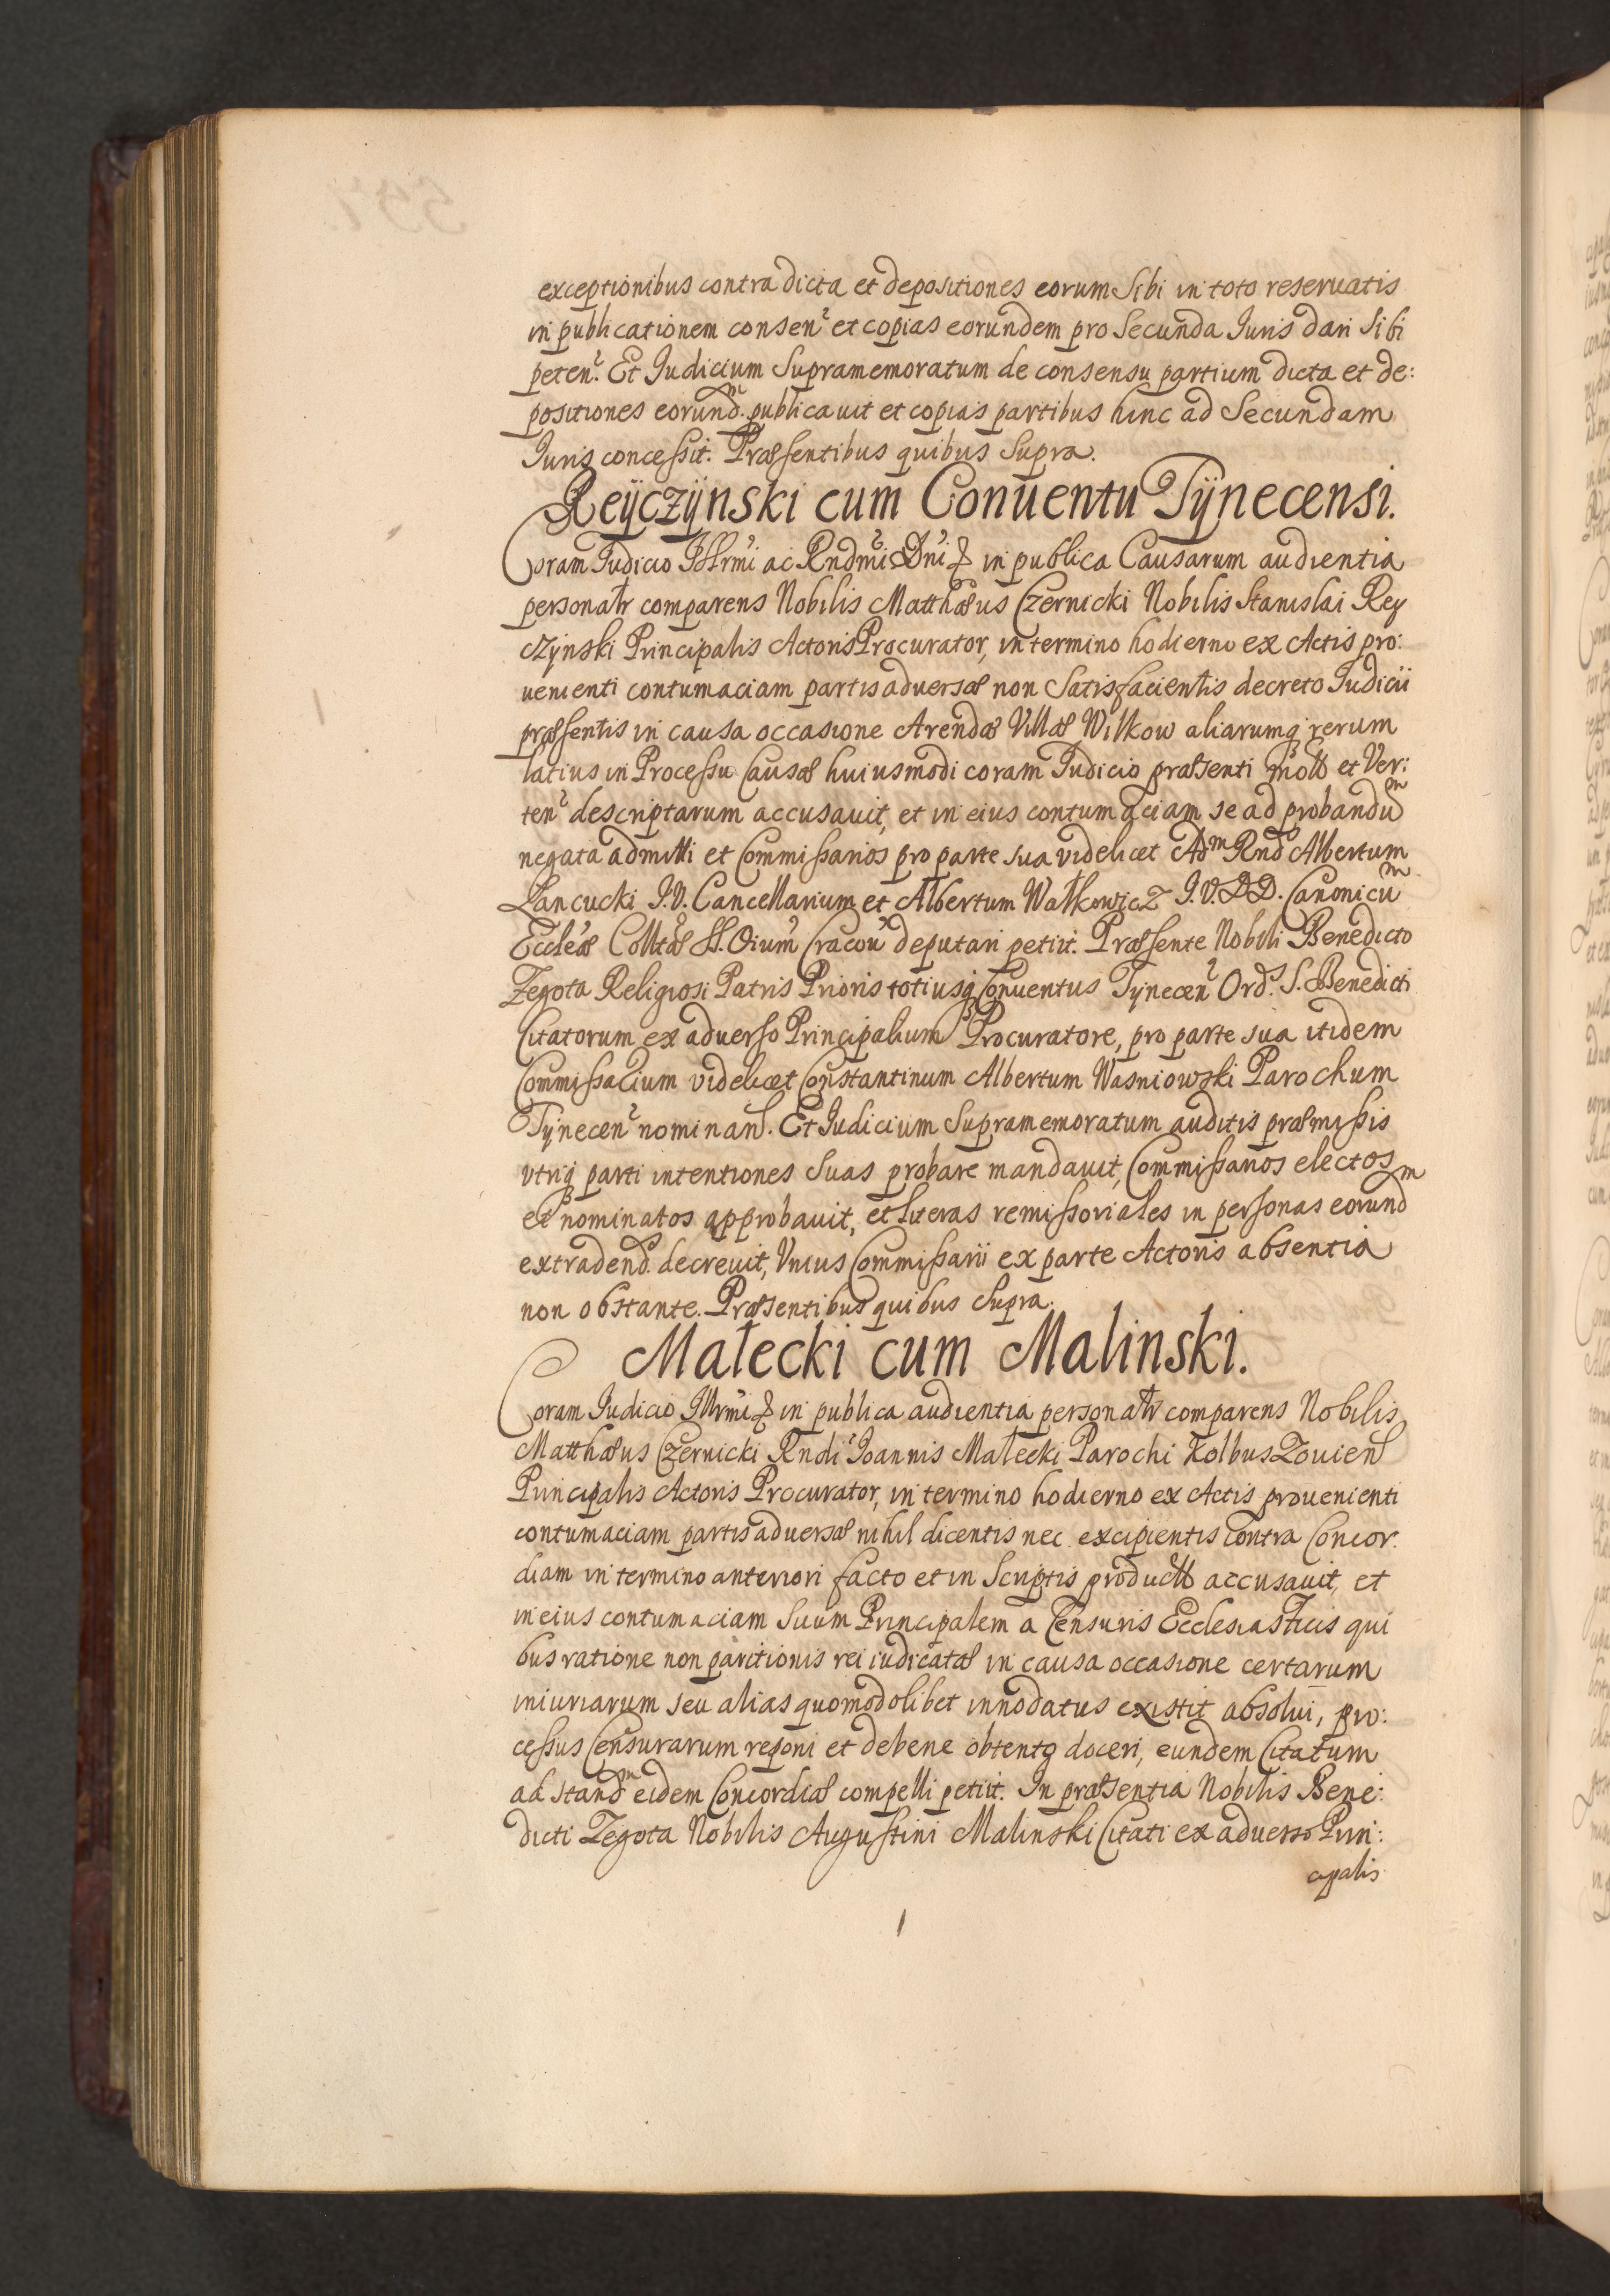 exceptionibus contra dicta et depositiones eorum Sibi in toto reseruatis
in publicationem consen. et copias eorundem pro Secunda Iuris dari Sibi
peten. Et Iudicium Supramemoratum de consensu partium dicta et de:
positiones eorund.m publicauit et copias partibus hinc ad Secundam
Iuris concessit. Præsentibus quibus Supra.
Reÿczÿnski cum Conuentu Tÿnecensi.
Coram Iudicio Illrmi ac Rndmi Dni & in publica Causarum audientia
personalr comparens Nobilis Matthæus Czernicki Nobilis Stanislai Rey
czÿnski Principalis Actoris Procurator, in termino hodierno ex Actis pro:
uenienti contumaciam partis aduersæ non Satisfacientis decreto Iudicii
præsentis in causa occasione Arendæ Villæ Wilkow aliarumq rerum
latius in Processu Causæ huiusmodi coram Iudicio præsenti mot et Ver:
ten descriptarum accusauit, et in eius contumaciam se ad probandum
negata admitti et Commissarios pro parte sua videlicet Adm Rnd Albertum
Lancucki I.V. Cancellarium et Albertum Wałkowicz I.V.DD. Canonicum
Eccleæ Colltæ SS. Oium Cracou deputari petiit. Præsente Nobili Benedicto
Zegota Religiosi Patris Prioris totiusq Conuentus Tÿnecen Ord.s S. Benedicti
Citatorum ex aduerso Principalium Procuratore, pro parte sua itidem
Commissarium videlicet Constantinum Albertum Wasniowski Parochum
Tÿnecen nominan. Et Iudicium Supramemoratum auditis præmissis
vtriq parti intentiones Suas probare mandauit, Commissarios electos
et nominatos approbauit, et literas remissoriales in personas eorundm
extradend. decreuit, Vnius Commissarii ex parte Actoris absentia
non obstante. Præsentibus quibus Supra.
Małecki cum Malinski.
Coram Iudicio Illrmi & in publica audientia personalr comparens Nobilis
Matthæus Czernicki Rndi Ioannis Małecki Parochi Kolbuszouien
Principalis Actoris Procurator, in termino hodierno ex Actis prouenienti
contumaciam partis aduersæ nihil dicentis nec excipientis contra Concor:
diam in termino anteriori facto et in Scriptis product accusauit, et
in eius contumaciam Suum Principalem a Censuris Ecclesiasticis qui
bus ratione non paritionis rei iudicatæ in causa occasione certarum
iniuriarum seu alias quomodolibet innodatus existit absolui, pro:
cessus Censurarum reponi et debene obtento doceri, eundem Citatum
ad standm eidem Concordiæ compelli petiit. In præsentia Nobilis Bene:
dicti Zegota Nobilis Augustini Malinski Citati ex aduerso Prin:
cipalis